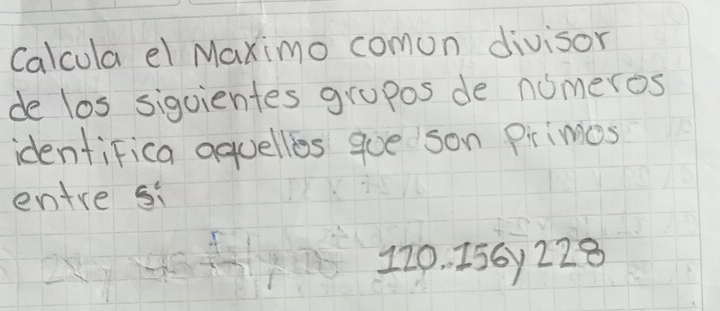 Calcula el Maximo comun divisor
de los siguientes grupos de números
identifica aquellos que son Primos
entre sí
120.156y 228